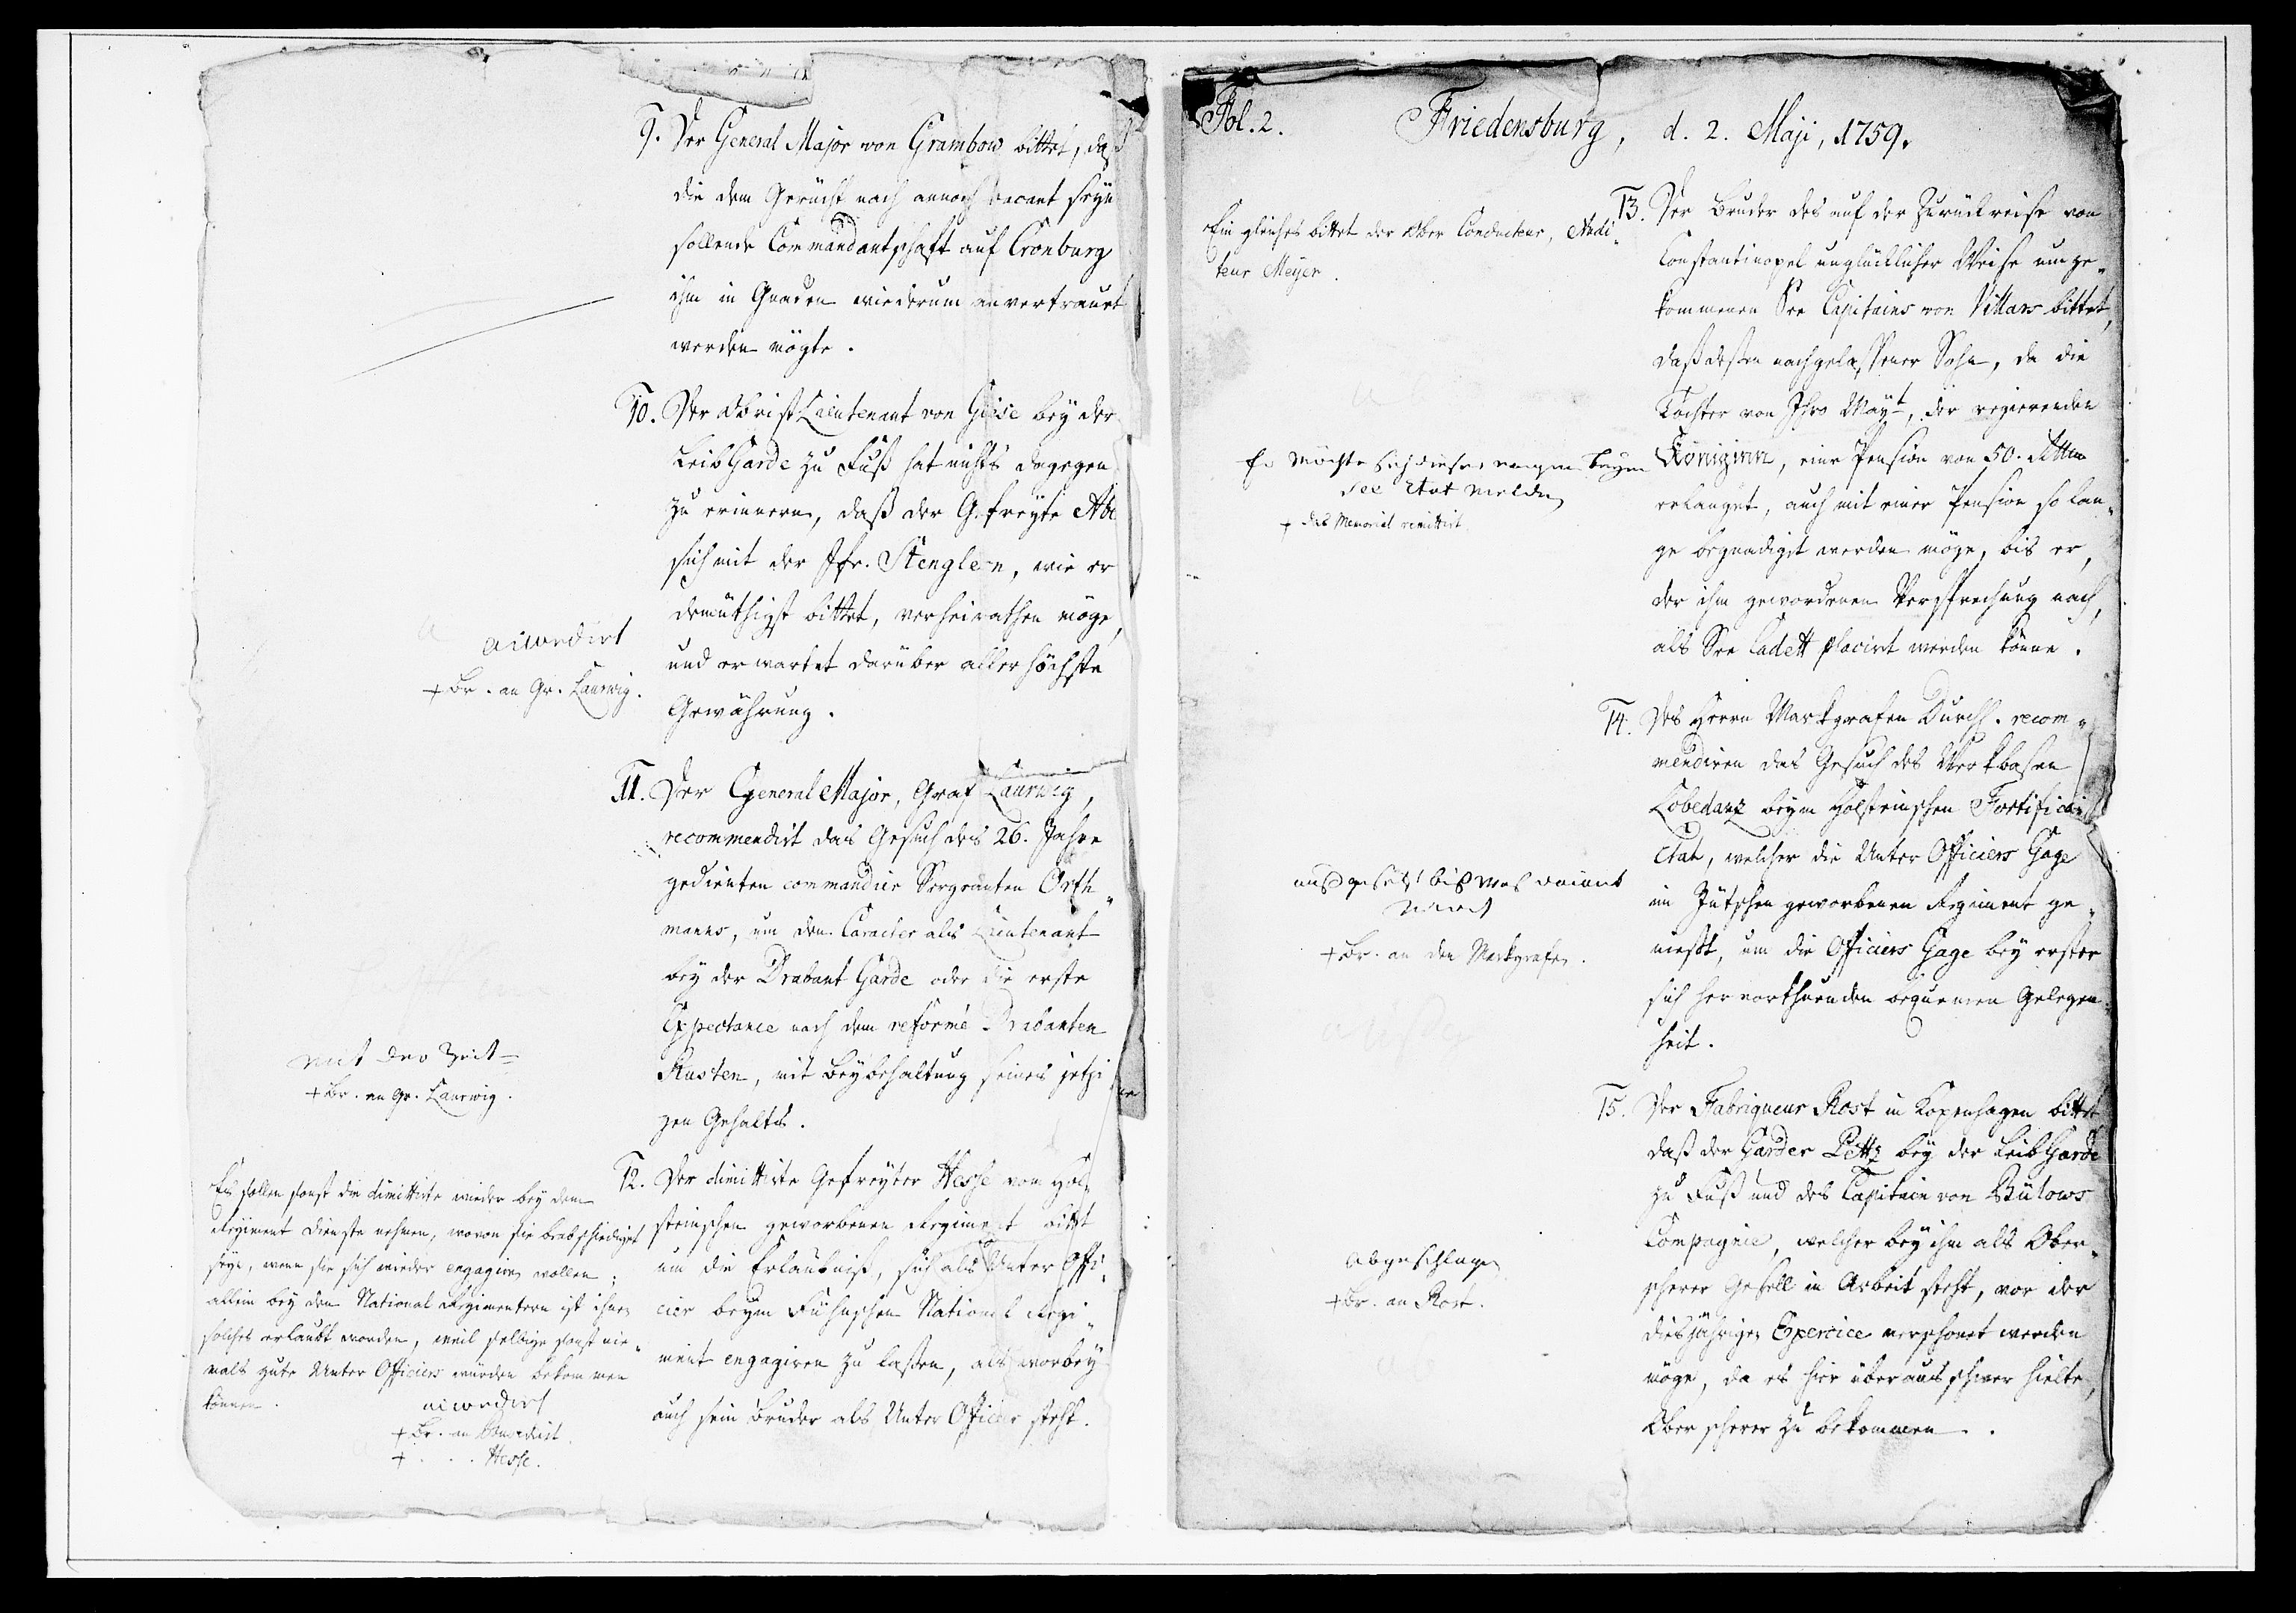 9. Der General Major von Grambow bittet, daß
die dem Gerücht nach annoch vacant seyn
sollende Commandantschaft auf Cronburg
ihm in Gnaden wiederum anvertrauet
werden mögte.
10. Der Obrist Lieutenant von Giese bey der
Leib Garde zu Fuß hat nichts dagegen
zu erinnern, daß der Gefreyte Abe
sich mit der Jfr. Stenglein, wie er
demüthigst bittet, verheirathen möge,
und erwartet darüber allerhöchste
Gewährung.
accordirt
+ Br. an Gr. Laurwig.
11. Der General Major, Graf Laurwig,
recommendirt das Gesuch des 26. Jahre
gedienten commandier Sergeanten Orth„
manns, um den Caracter als Lieutenant
bey der Drabant Garde oder die erste
Expectance nach dem reformé Drabanten
Rusten, mit Beybehaltung seines jetzi„
gen Gehalts.
mit der Zeit
+ Br. an Gr. Laurwig.
12. Der dimittirte Gefreyter Hesse vom Hol„
steinschen geworbenen Regiment bittet
um die Erlaubniß, sich als Unter Offi„
cier beym Fühnschen National Regi„
ment engagiren zu laßen, als worbey
auch sein Bruder als Unter Officier steht.
Es sollen sonst die dimittirte wieder bey dem
Regiment Dienste nehmen, wovon sie beabschiediget
seyn, wenn sie sich wieder engagiren wollen;
allein bey den National Regimentern ist ihnen
solches erlaubt worden, weil selbige sonst nie„
mals gute Unter Officiers würden bekommen
können.
accordirt
+ Br. an
+ . . . Hesse.
Fol. 2. Friedensburg, d. 2. Maji, 1759.
13. Der Bruder des auf der Zurückreise von
Constantinopel unglücklicher Weise umge„
kommenen See Capitains von Villars bittet,
daß deßen nachgelaßener Sohn, da die
Tochter von Ihro Mayt, der regierenden
Königinn, eine Pension von 50. Rthlr
erlanget, auch mit einer Pension so lan„
ge begnadigt werden möge, bis er,
der ihm gewordenen Versprechung nach,
als See Cadett placirt werden könne.
Ein gleiches bittet der Ober Conducteur, Audi„
teur Meyer.
Er möchte sich dieserwegen beym
See Etat melden
+ das Memorial remittirt.
14. Des Herrn Markgrafen Durchl. recom„
mendiren das Gesuch des Werkbasen
Lobedanz beym Holsteinschen Fortificati
Etat, welcher die Unter Officiers Gage
im Jütschen geworbenen Regiment ge„
nießt, um die Officiers Gage bey erster
sich hervorthuenden bequemen Gelegen„
heit.
ausgesetzt bis was vacant
wird
+ Br. an den Markgrafen.
15. Der Fabriqueur Rost in Kopenhagen bittet
daß der Garder Lettz bey der Leib Garde
zu Fuß und des Capitain von Bülows
Compagnie, welcher bey ihm als Ober„
scherer Gesell in Arbeit steht, von der
diesjährigen Exercice verschonet werden
möge, da es hier überaus schwer hielte,
Ober scherer zu bekommen.
abgeschlagen
+ Br. an Rost.